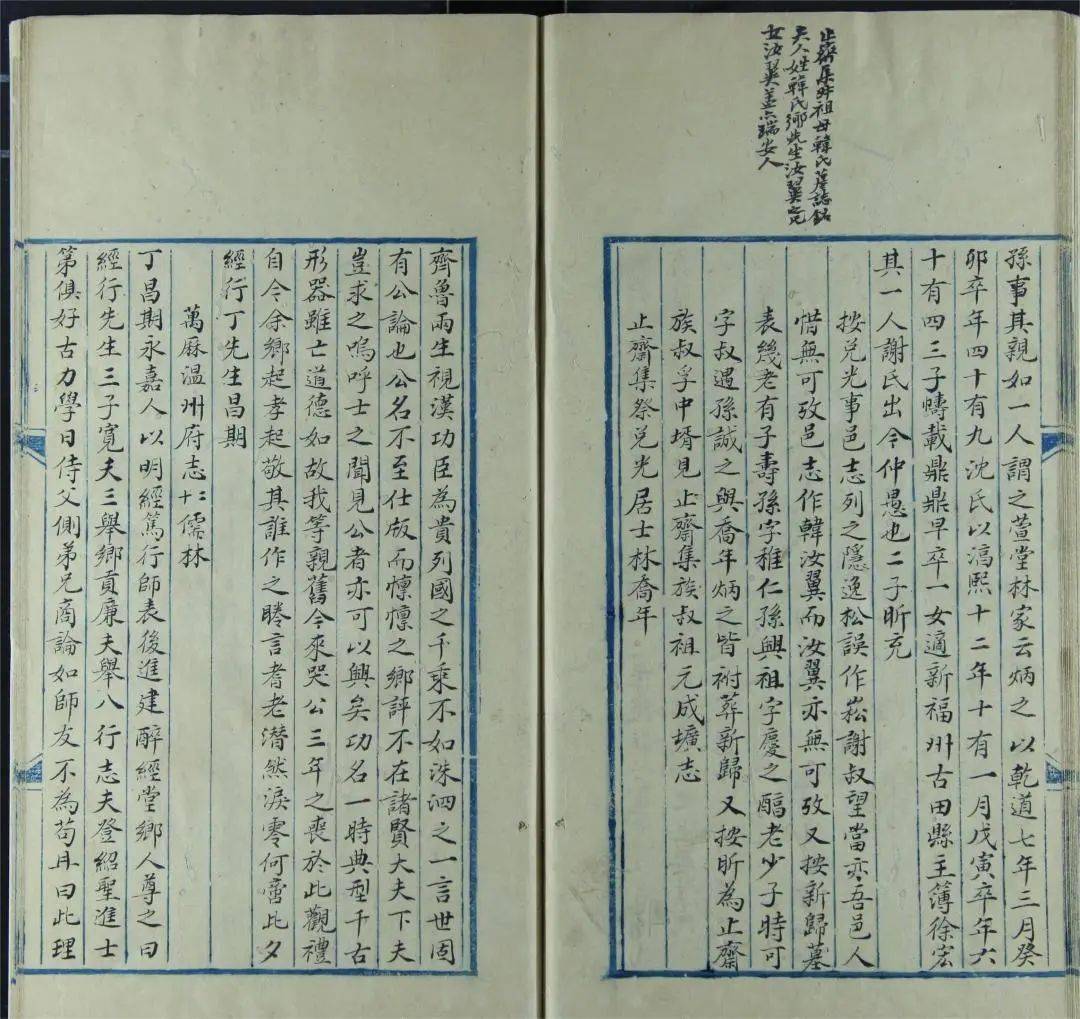 止齋集外祖母韓氏墓誌銘
夫人姓韓氏鄉先生汝翼之
女汝翼蓋亦瑞安人
孫事其親如一人謂之萱堂林家云炳之以乾道七年三月癸
卯卒年四十有九沈氏以淳熙十二年十有一月戊寅卒年六
十有四三子疇載鼎鼎早卒一女適新福州古田縣主簿徐宏
其一人謝氏出今仲愚也二子昕充
按兌光事邑志列之隱逸松誤作崧謝叔望當亦吾邑人
惜無可攷邑志作韓汝翼而汝翼亦無可攷又按新歸墓
表幾老有子壽孫字稚仁孫興祖字慶之醻老少子時可
字叔遇孫誠之與喬年炳之皆祔葬新歸又按昕為止齋
族叔孚中壻見止齋集族叔祖元成壙志
止齋集祭兌光居士林喬年
齊魯兩生視漢功臣為貴列國之千乘不如洙泗之一言世固
有公論也公名不至仕版而懍懍之鄉評不在諸賢大夫下夫
豈求之嗚呼士之聞見公者亦可以興矣功名一時典型千古
形器雖亡道德如故我等親舊今來哭公三年之喪於此觀禮
自今余鄉起孝起敬其誰作之睠言耆老潸然淚零何啻此夕
經行丁先生昌期
萬厤温州府志十二儒林
丁昌期永嘉人以明經篤行師表後進建醉經堂鄉人尊之曰
經行先生三子寬夫三舉鄉貢廉夫舉八行志夫登紹聖進士
第俱好古力學日侍父側弟兄商論如師友不為苟冉曰此理